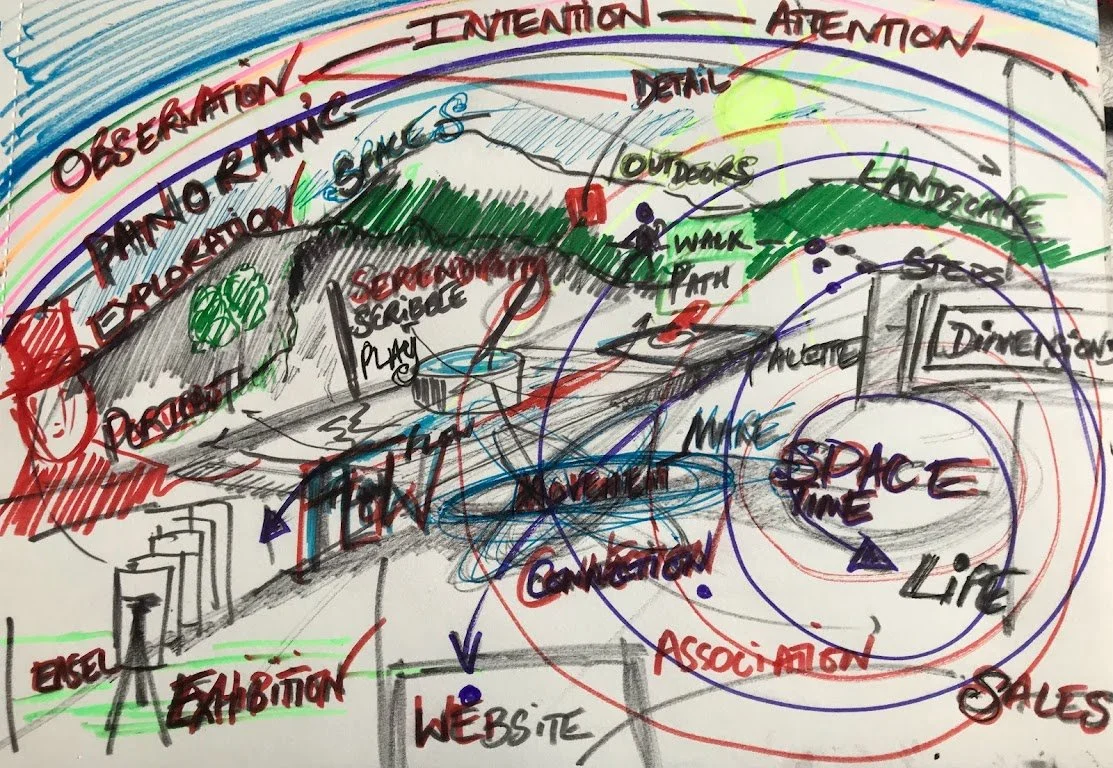 INTENTION — ATTENTION
OBSERVATION
DETAIL
PANORAMIC
SPACES
OUTDOORS
LANDSCAPE
EXPLORATION
WALK
PATH
STEPS
SERENDIPITY
SCRIBBLE
PLAY
DIMENSIONS
PALETTE
PORTRAIT
MAKE
FLOW
FLOW
MOVEMENT
SPACE
TIME
CONNECTION
LIFE
ASSOCIATION
EASEL
EXHIBITION
SALES
WEBSITE